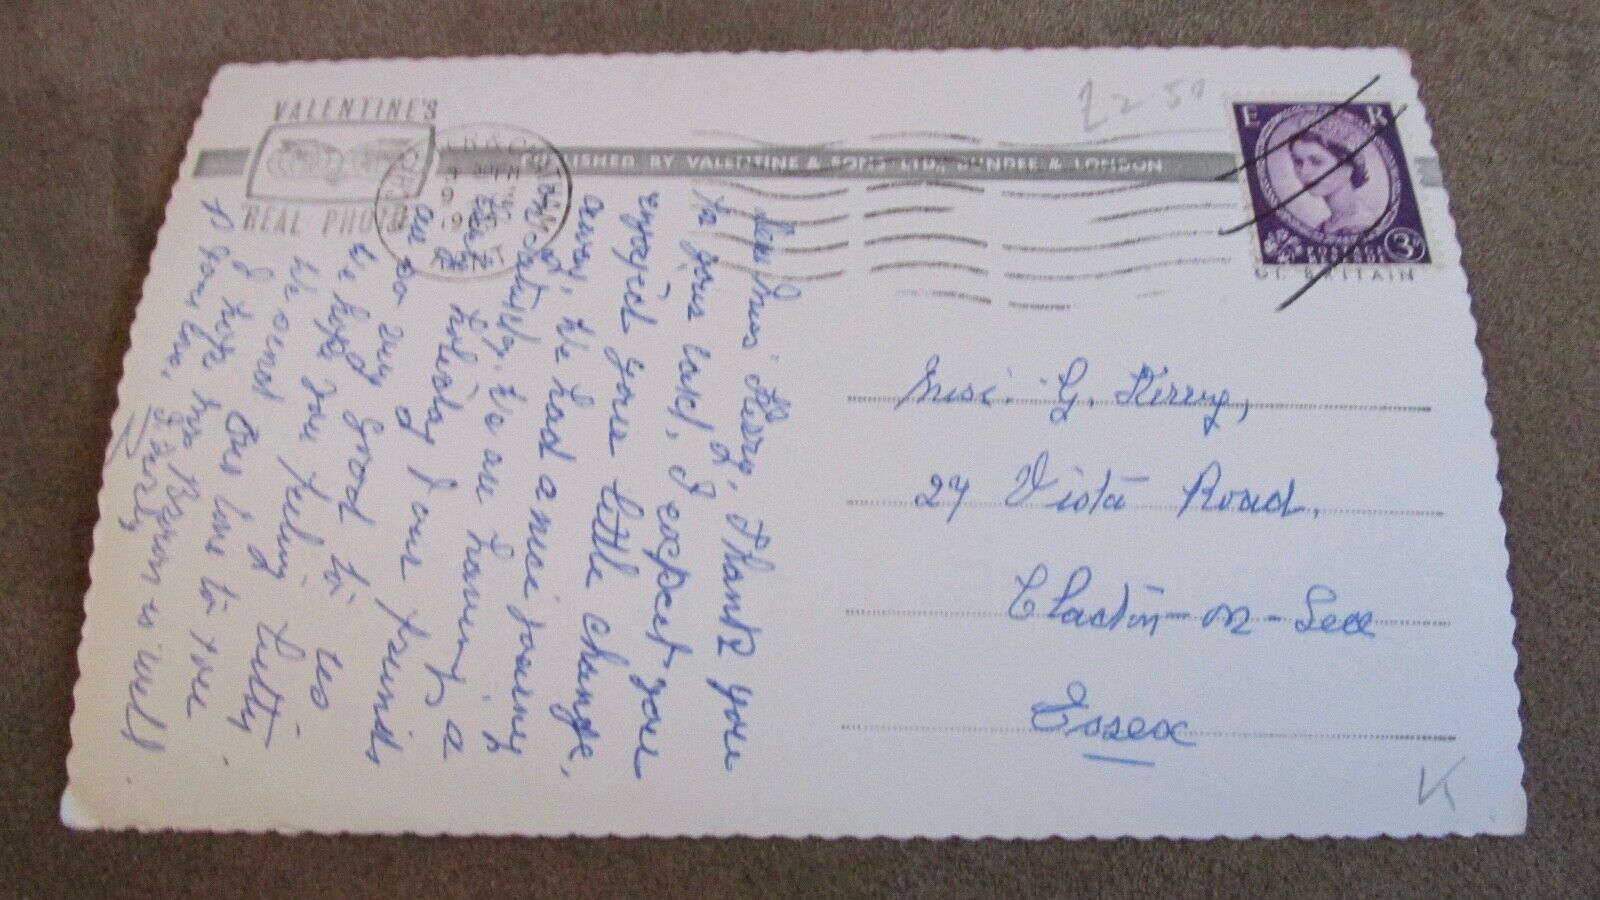 £2-50
VALENTINE'S
REAL PHOTO
PUBLISHED BY VALENTINE & SONS LTD., DUNDEE & LONDON
KENT
E R
POSTAGE
3D
GT. BRITAIN
Dear Miss Kerry, Thank you
for your card, I expect you
enjoyed your little change,
away, we had a nice journey
on Saturday. We are having a
holiday & our friends
are so very good to us
We hope you feeling better.
We send our love to you
I hope Mrs Brown is well.
Miss. G. Kerry,
27 Vista Road,
Clacton-on-Sea
Essex
K